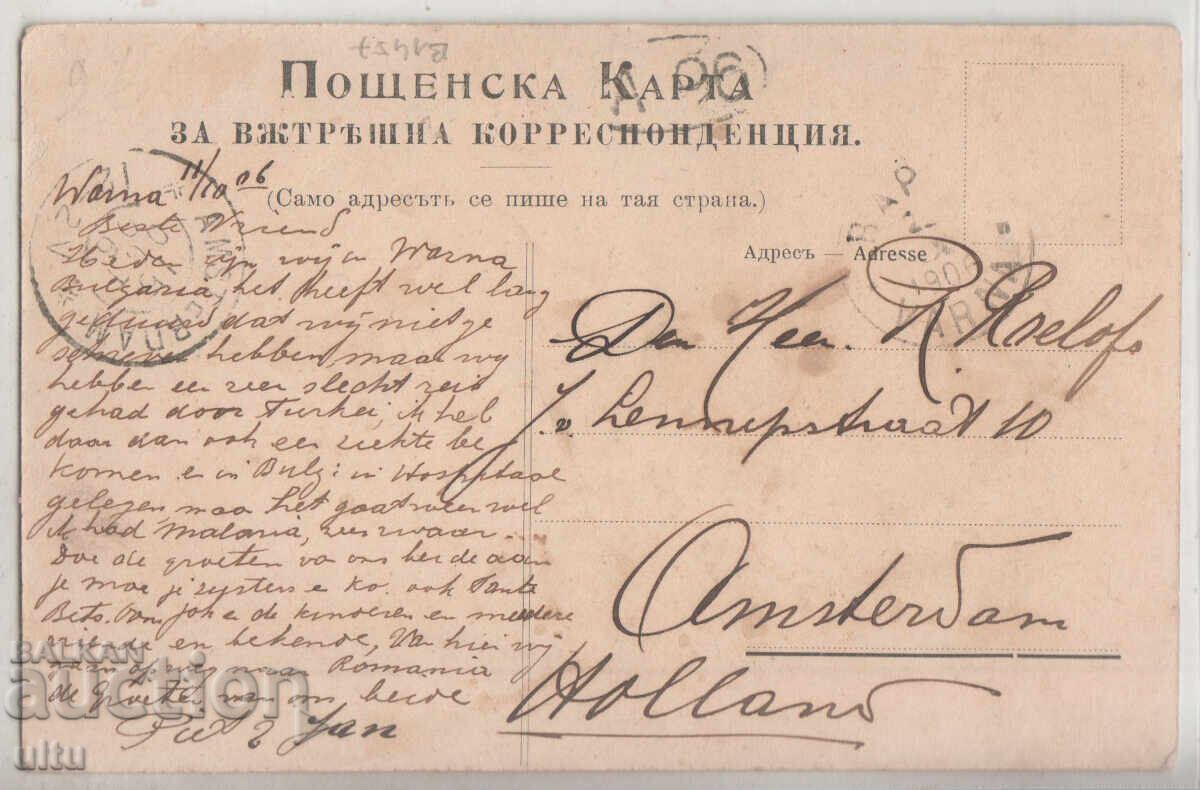 B1457
Д 06
Пощенска Карта
за вѫтрѣшна корреспонденция.
(Само адресътъ се пише на тая страна.)
Адресъ — Adresse
ВАР
1906
VARNA
AMSTERDAM
Warna 11/10 06
Beste Vriend
Heden zijn wij in Warna
Bulgaria, het heeft wel lang
geduurd dat wij niet ge
schreven hebben, maar wij
hebben een zeer slecht reis
gehad door Turkei, ik heb
daar dan ook een ziekte be
komen en in Bulg: in Hospitaal
gelegen, maar het gaat weer wel
ik had Malaria, zeer zwaar.
Doe de groeten van ons beide aan
je moe je zusters en Ko. ook Tante
Bets. Oom Joh en de kinderen en meerdere
en bekende, Van hier wij
gaan op weg naar Romania
de Groeten van ons beide
Piet & Jan
Den Heer R. Roelofs
J. v. Lennepstraat 10
Amsterdam
Holland
BALKAN
auction
ultu